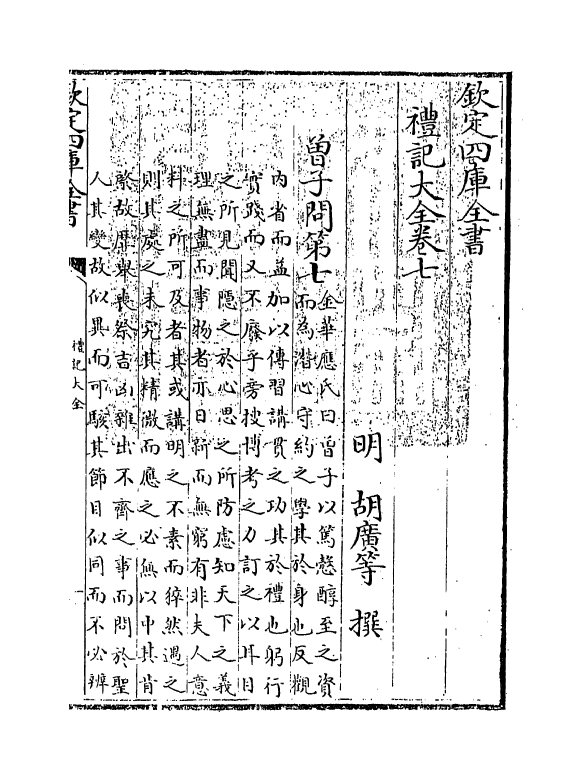 欽定四庫全書
禮記大全卷七
明 胡廣等 撰
曾子問第七
金華應氏曰曾子以篤慤醇至之資
而為潛心守約之學其於身也反觀
內省而益加以傳習講貫之功其於禮也躬行
實踐而又不廢乎旁搜博考之力訂之以耳目
之所見聞隱之於心思之所防慮知天下之義
理無盡而事物者亦日新而無窮有非夫人意
料之所可及者其或講明之不素而猝然遇之
則其處之未究其精微而應之必無以中其肯
綮故歷舉喪祭吉凶雜出不齊之事而問於聖
人其變故似異而可駭其節目似同而不必辨
欽定四庫全書
禮記大全
一